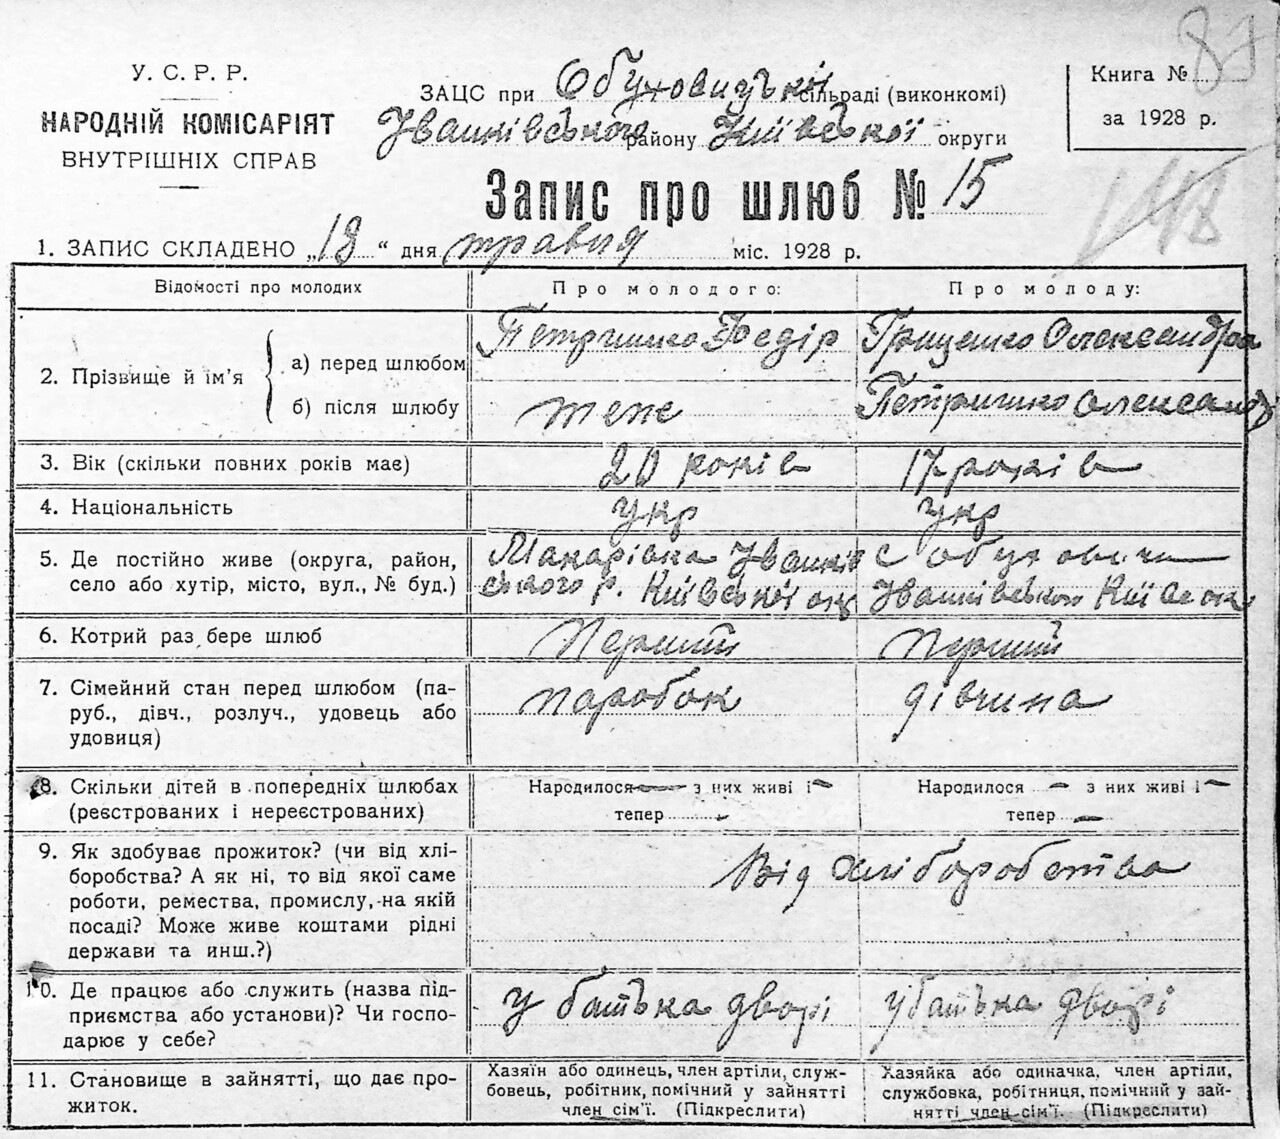 У. С. Р. Р.
НАРОДНІЙ КОМІСАРІЯТ
ВНУТРІШНІХ СПРАВ
ЗАЦС при Обуховицькій сільраді (виконкомі)
Іванківського району Київської округи
Книга №
за 1928 р.
Запис про шлюб № 15
148
1. ЗАПИС СКЛАДЕНО „18“ дня травня міс. 1928 р.
Відомості про молодих
Про молодого:
Про молоду:
2. Прізвище й ім’я
а) перед шлюбом
Петришко Федір
Грищенко Олександра
б) після шлюбу
теж
Петришко Олександра
3. Вік (скільки повних років має)
20 років
17 років
4. Національність
укр
укр
5. Де постійно живе (округа, район,
село або хутір, місто, вул., № буд.)
Макарівка Іванків
ського р. Київської окр
с Обуховичи
Іванківського Київс окр
6. Котрий раз бере шлюб
перший
перший
7. Сімейний стан перед шлюбом (па-
руб., дівч., розлуч., удовець або
удовиця)
паробок
дівчина
8. Скільки дітей в попередніх шлюбах
(реєстрованих і нереєстрованих)
Народилося — з них живі і —
тепер —
Народилося — з них живі і —
тепер —
9. Як здобуває прожиток? (чи від хлі-
боробства? А як ні, то від якої саме
роботи, ремества, промислу, на якій
посаді? Може живе коштами рідні
держави та инш.?)
Від хліборобства
10. Де працює або служить (назва під-
приємства або установи)? Чи госпо-
дарює у себе?
у батька дворі
у батька дворі
11. Становище в зайнятті, що дає про-
житок.
Хазяїн або одинець, член артіли, служ-
бовець, робітник, помічний у зайнятті
член сім’ї. (Підкреслити)
Хазяйка або одиначка, член артіли,
службовка, робітниця, помічний у зай-
нятті член сім’ї. (Підкреслити)